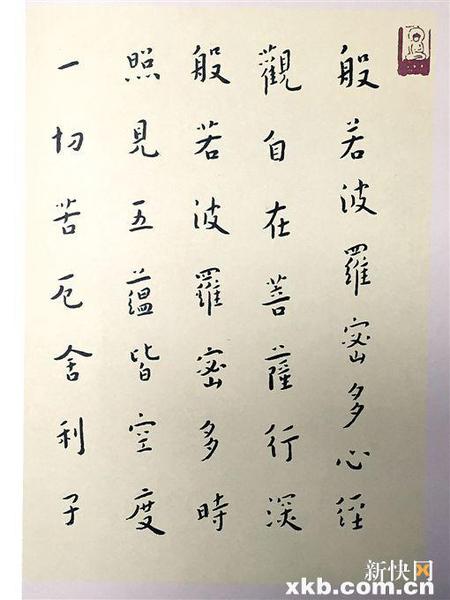 般若波羅蜜多心經
觀自在菩薩行深
般若波羅蜜多時
照見五蘊皆空度
一切苦厄舍利子
新快网
xkb.com.cn